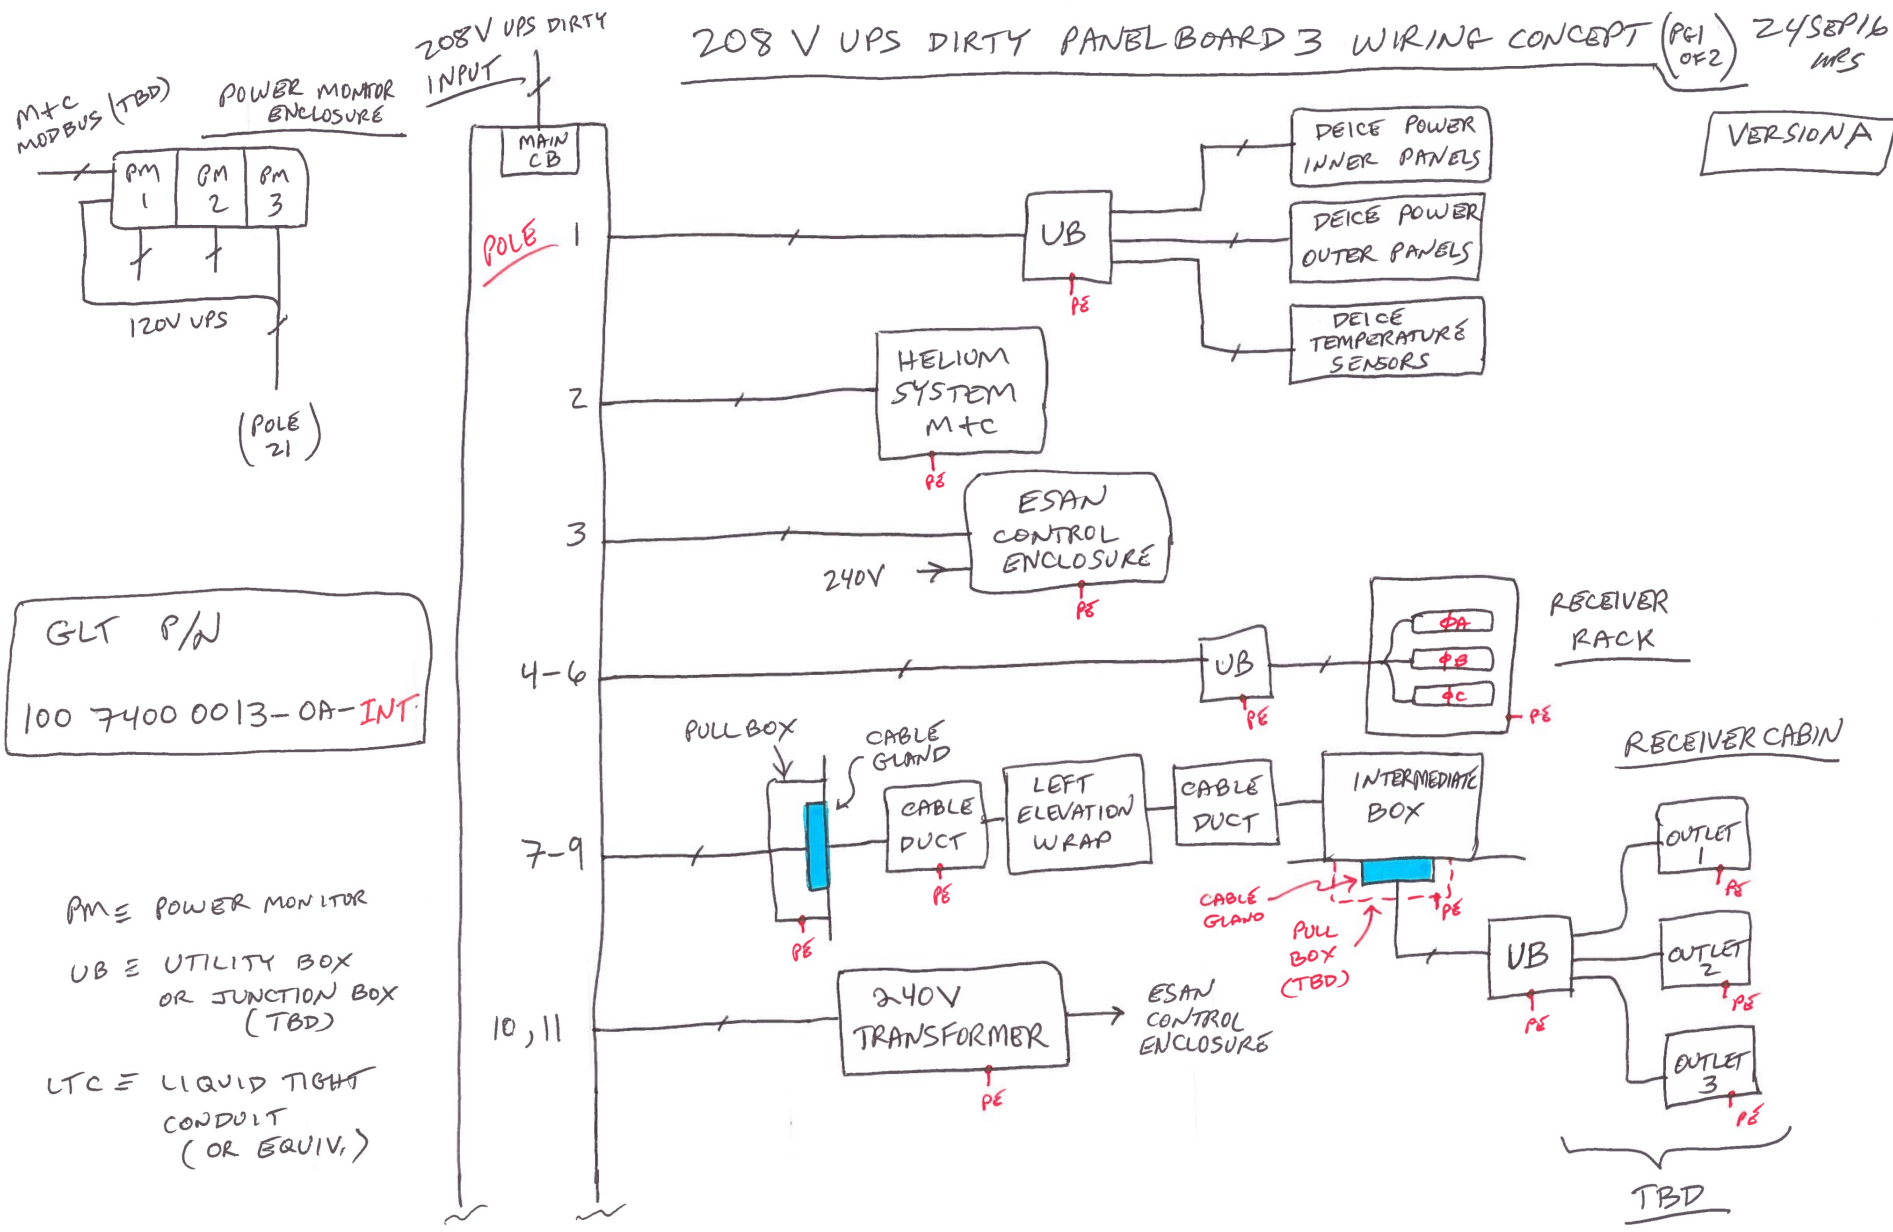 208 V UPS DIRTY PANELBOARD 3 WIRING CONCEPT (PG1 OF 2)
24SEP16
WRS
VERSION A
208V UPS DIRTY
INPUT
M+C
MODBUS (TBD)
POWER MONITOR
ENCLOSURE
PM
1
PM
2
PM
3
120V UPS
(POLE
21)
MAIN
CB
POLE 1
UB
PE
DEICE POWER
INNER PANELS
DEICE POWER
OUTER PANELS
DEICE
TEMPERATURE
SENSORS
2
HELIUM
SYSTEM
M+C
PE
3
240V
ESAN
CONTROL
ENCLOSURE
PE
GLT P/N
100 7400 0013-0A-INT
4-6
UB
PE
ΦA
ΦB
ΦC
PE
RECEIVER
RACK
7-9
PULL BOX
CABLE
GLAND
PE
CABLE
DUCT
PE
LEFT
ELEVATION
WRAP
CABLE
DUCT
INTERMEDIATE
BOX
CABLE
GLAND
PE
PULL
BOX
(TBD)
RECEIVER CABIN
UB
PE
OUTLET
1
PE
OUTLET
2
PE
OUTLET
3
PE
TBD
10,11
240V
TRANSFORMER
PE
ESAN
CONTROL
ENCLOSURE
PM ≡ POWER MONITOR
UB ≡ UTILITY BOX
OR JUNCTION BOX
(TBD)
LTC ≡ LIQUID TIGHT
CONDUIT
(OR EQUIV.)